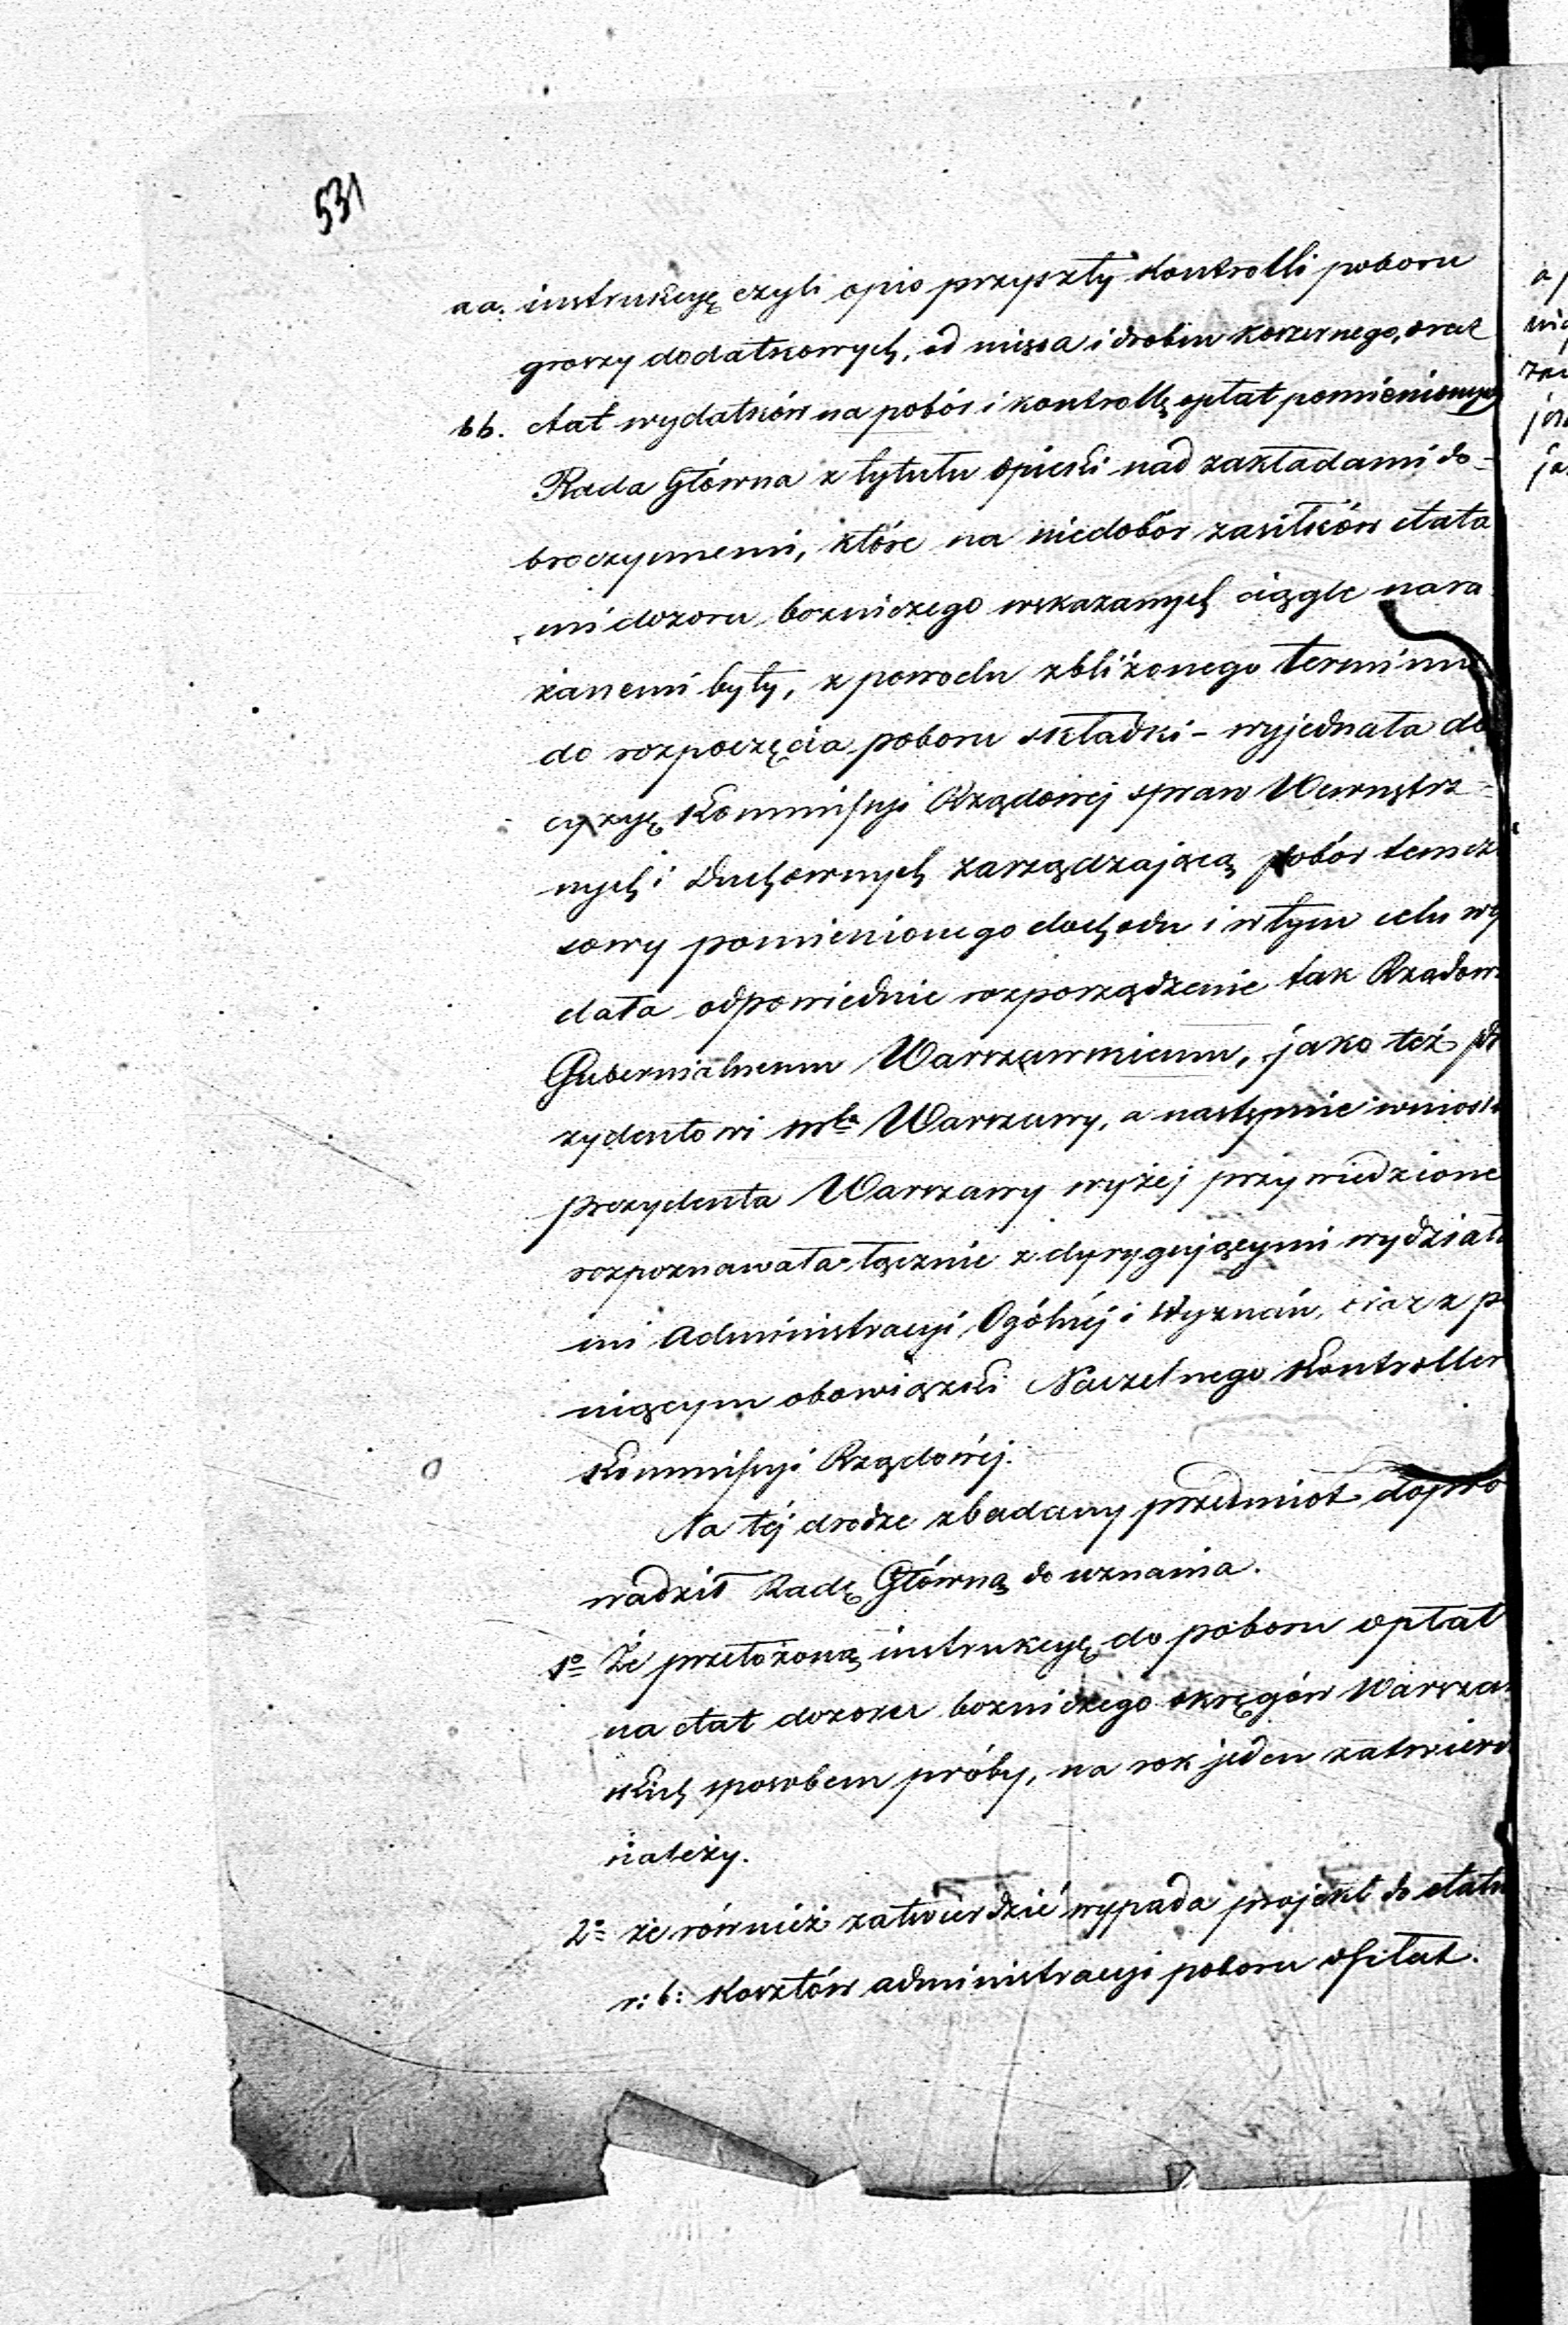 531
aa. instrukcyę czyli opis przyszły kontrolli poboru
groszy dodatkowych, od mięsa i drobiu koszernego, oraz
bb. etat wydatków na pobór i kontrollę opłat pomienionych
Rada Główna z tytułu opieki nad zakładami do-
broczynnemi, które na niedobór zasiłków etata
mi dozoru bożniczego wskazanych ciągle nara
żanemi były, z powodu zbliżonego terminu
do rozpoczęcia poboru składki – wyjednała de
cyzyę Kommissyi Rządowej spraw Wewnętrz-
nych i Duchownych zarządzającą pobór temcza
sowy pomienionego dochodu i w tym celu wy
dała odpowiednie rozporządzenie tak Rządowi
Gubernialnemu Warszawskiemu, jako też Pre
zydentowi mta Warszawy, a następnie wnioski
Prezydenta Warszawy wyżej przywiedzione
rozpoznawała łącznie z dyrygującymi wydziała
mi Administracyi Ogólnéj i Wyznań, oraz z p
niącym obowiązki Naczelnego Kontroller
Kommissyi Rządowéj.
Na téj drodze zbadany przedmiot dopro
wadził Radę Główną do uznania.
1o Że przełożoną instrukcyę do poboru opłat
na etat dozoru bożniczego okręgów Warszaw
skich sposobem próby, na rok jeden zatwierd
należy.
2o że również zatwierdzić wypada projekt do etatu
r: b: kosztów administracyi poboru opłat.
a p